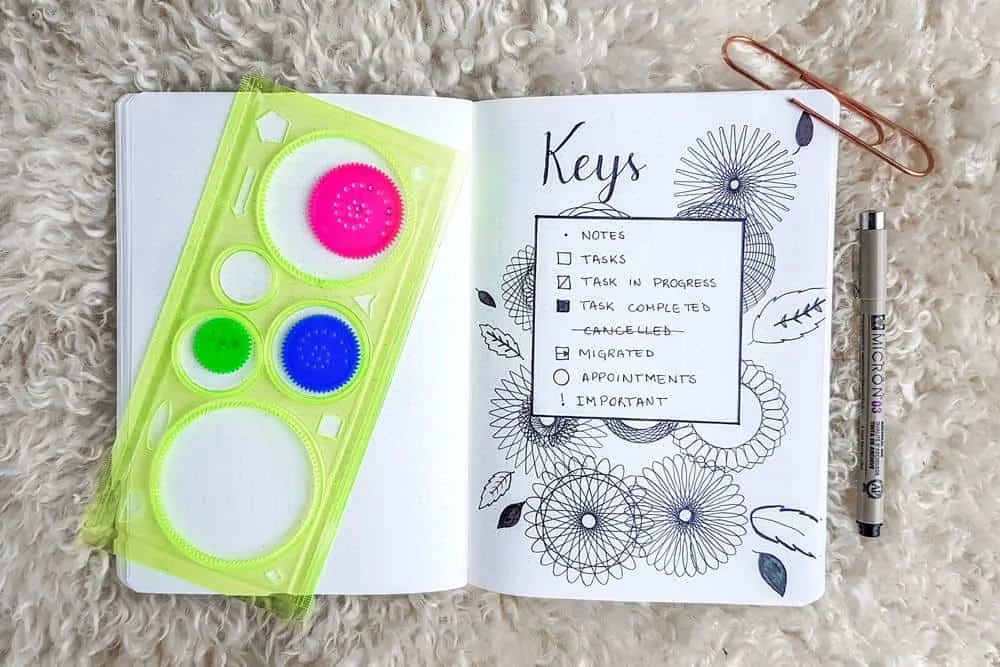 Keys
• NOTES
TASKS
TASK IN PROGRESS
TASK COMPLETED
CANCELLED
MIGRATED
APPOINTMENTS
! IMPORTANT
MICRON 03